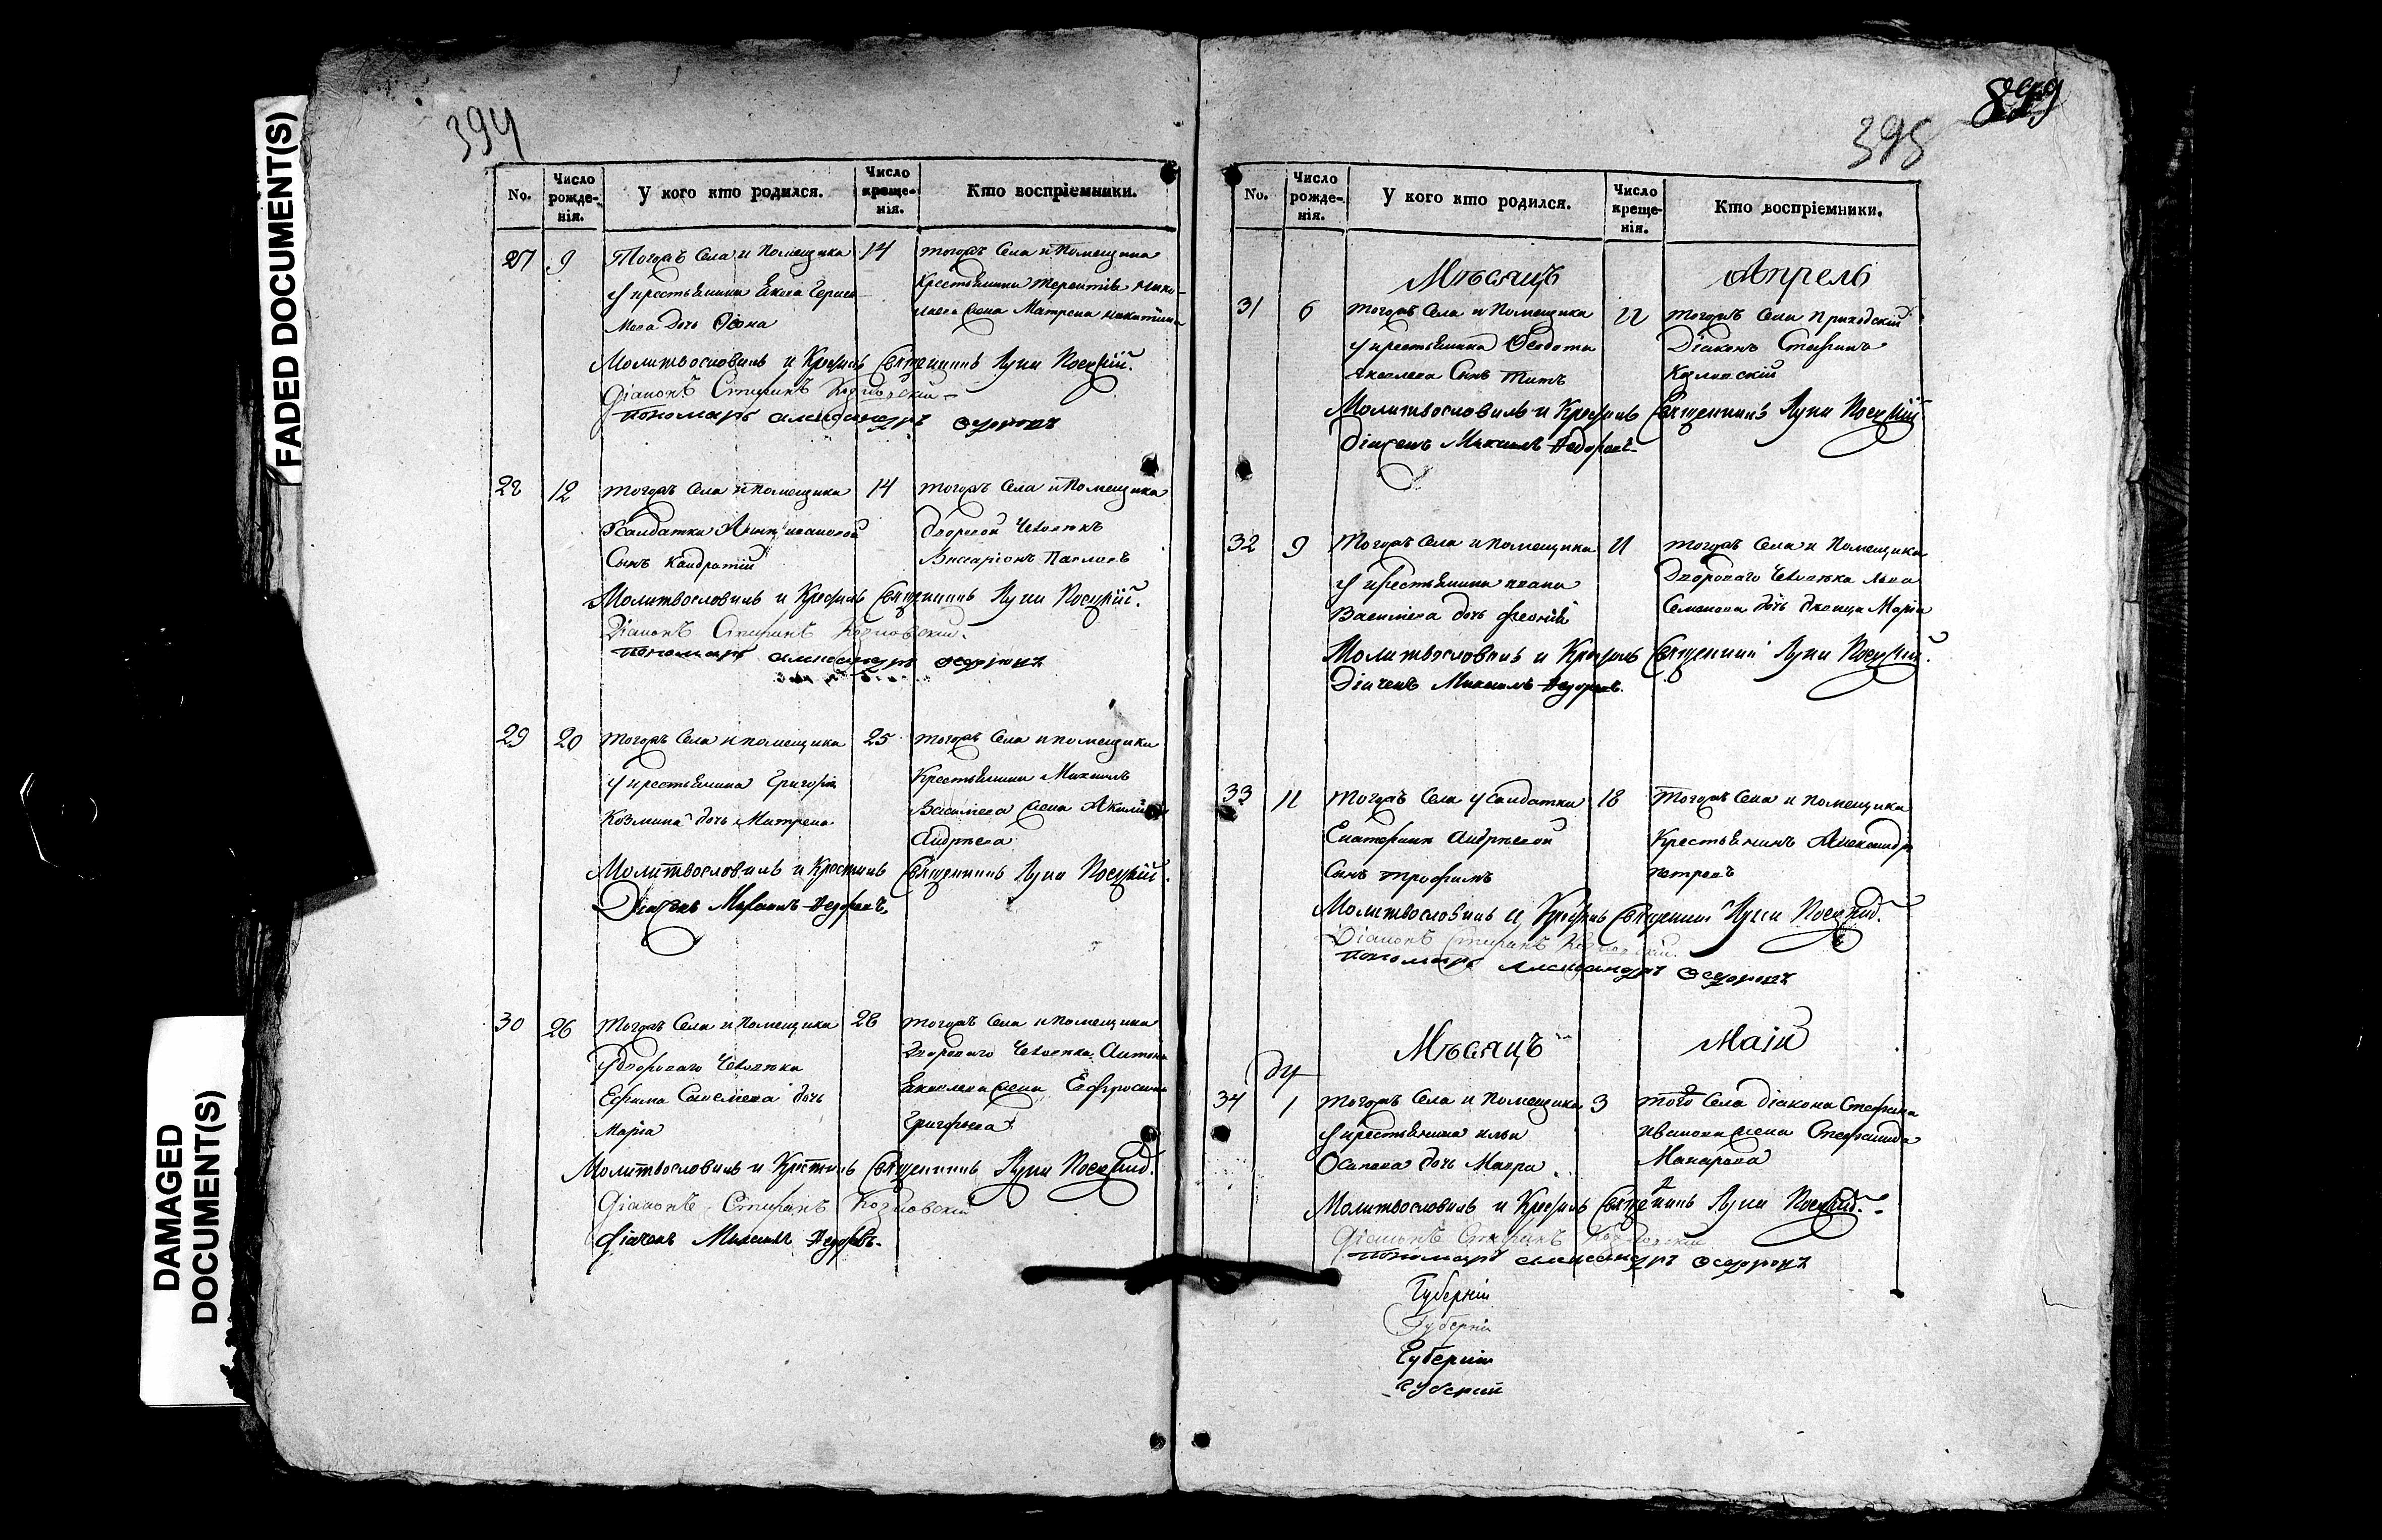 FADED DOCUMENT(S)
DAMAGED
DOCUMENT(S)
394
No.
Число рожде-нія.
У кого кто родился.
Число креще-нія.
Кто воспріемники.
27 9
Тогожъ Села и Помещика
у крестьянина
дочь
14
тогожъ Села и Помещика
Крестьянина Терентія
жена Матрена Никитина
Молитвословилъ и Крестилъ Священникъ Луки
Діаконъ Стефанъ Козловскій
пономарь александръ Ѳедоровъ
28 12
тогожъ Села и помещика
Усалдатки Ивановой
Сынъ Кандратій
14
тогожъ Села и Помещика
дворовой Человекъ
Виссаріонъ Павловъ
Молитвословилъ и Крестилъ Священникъ Луки
Діаконъ Стефанъ Козловскій.
пономарь александръ Ѳедоровъ
29 20
тогожъ Села и помещика
у крестьянина Григорія
Козмина дочь Матрена
25
тогожъ Села и помещика
Крестьянина Михаила
Васильева жена
Андреева
Молитвословилъ и Крестилъ Священникъ Луки
Дьячекъ Федоровъ
30 26
Тогожъ Села и Помещика
Удвороваго Человека
Ефима Савельева дочь
Марія
28
тогожъ Села и помещика
Двороваго Человека Антона
Яковлева жена Ефросинія
Григорьева
Молитвословилъ и Крестилъ Священникъ Луки
Діаконъ Стефанъ Козловскій
Діячекъ Федоровъ.
899
395
No.
Число рожде-нія.
У кого кто родился.
Число креще-нія.
Кто воспріемники.
Мѣсяцъ Апрель
31 6
тогожъ Села и Помещика
у крестьянина Ѳедота
Яковлева Сынъ Титъ
тогожъ Села Приходскій
Діаконъ Стефанъ
Козловскій
Молитвословилъ и Крестилъ Священникъ Луки
Діячекъ Федоровъ
32 9
Тогожъ Села и помещика
у крестьянина ивана
Васильева дочь
11
тогожъ Села и Помещика
Двороваго Человека Льва
Семенова дочь девица Марія
Молитвословилъ и Крестилъ Священникъ Луки
Діячекъ Федоровъ.
33 11
Тогожъ Села у салдатки
Екатерины Андреевой
Сынъ трофимъ
18
Тогожъ Села и помещика
Крестьянинъ Александръ
петровъ
Молитвословилъ и Крестилъ Священникъ Луки
Діаконъ Стефанъ Козловскій.
пономарь Александръ Ѳедоровъ
Мѣсяцъ Маій
34 1
тогожъ Села и Помещика
у крестьянина ильи
Осипова дочь Мавра.
3
того Села діакона Стефана
иванова жена Стефанида
Макарова
Молитвословилъ и Крестилъ Священникъ Луки
Діаконъ Стефанъ Козловскій
пономарь александръ Ѳедоровъ
Губерніи
Губерніи
Губерніи
Губерніи